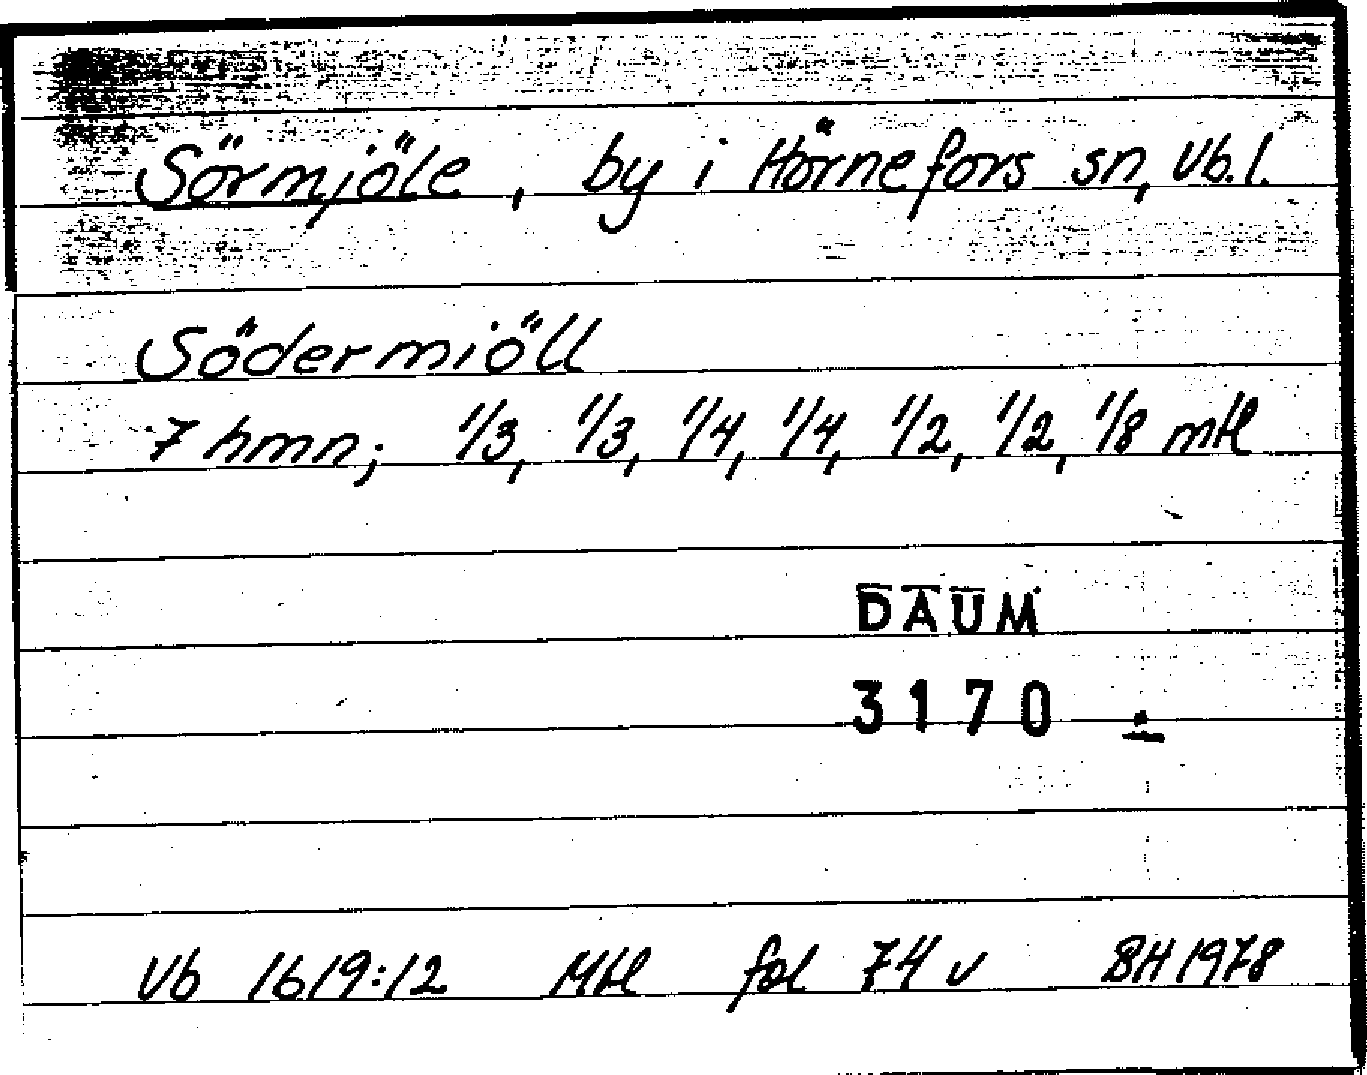 Sörmjöle, by i Hörnefors sn, Vb.l.
Södermiöll
7 hmn; 1/3, 1/3, 1/4, 1/4, 1/2, 1/2, 1/8 mtl
DAUM
3170
Vb 1619:12 Mtl fol 74 v BH 1978